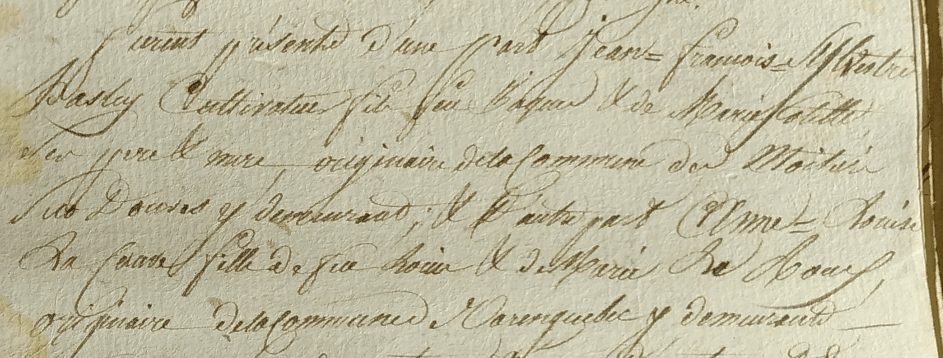 furent présents d'une part Jean = françois = Sylvestre
Hasley Cultivateur fils feu Jaques & de Marie Colette
Ses pere & mere, originaire de la Commune de Moitier
y demeurant ; & d'autre part Anne = Louise
Le fille de feu Louis & de Marie Le
originaire de la Commune de Varenguebec y demeurant —